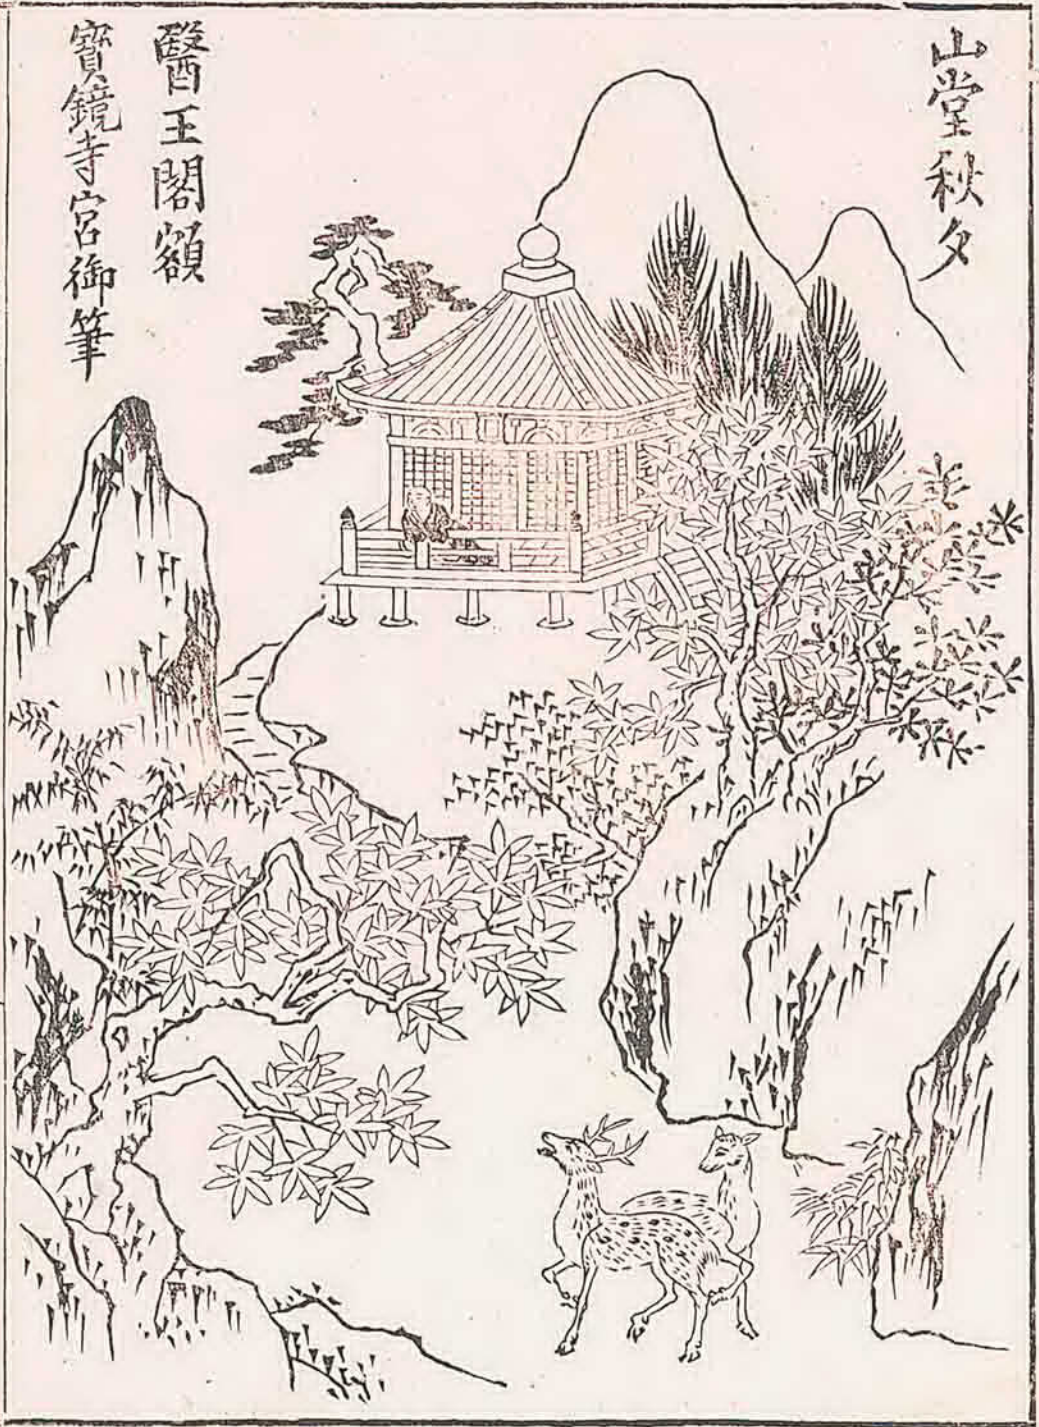 山堂秋夕
醫王閣額
寶鏡寺宮御筆